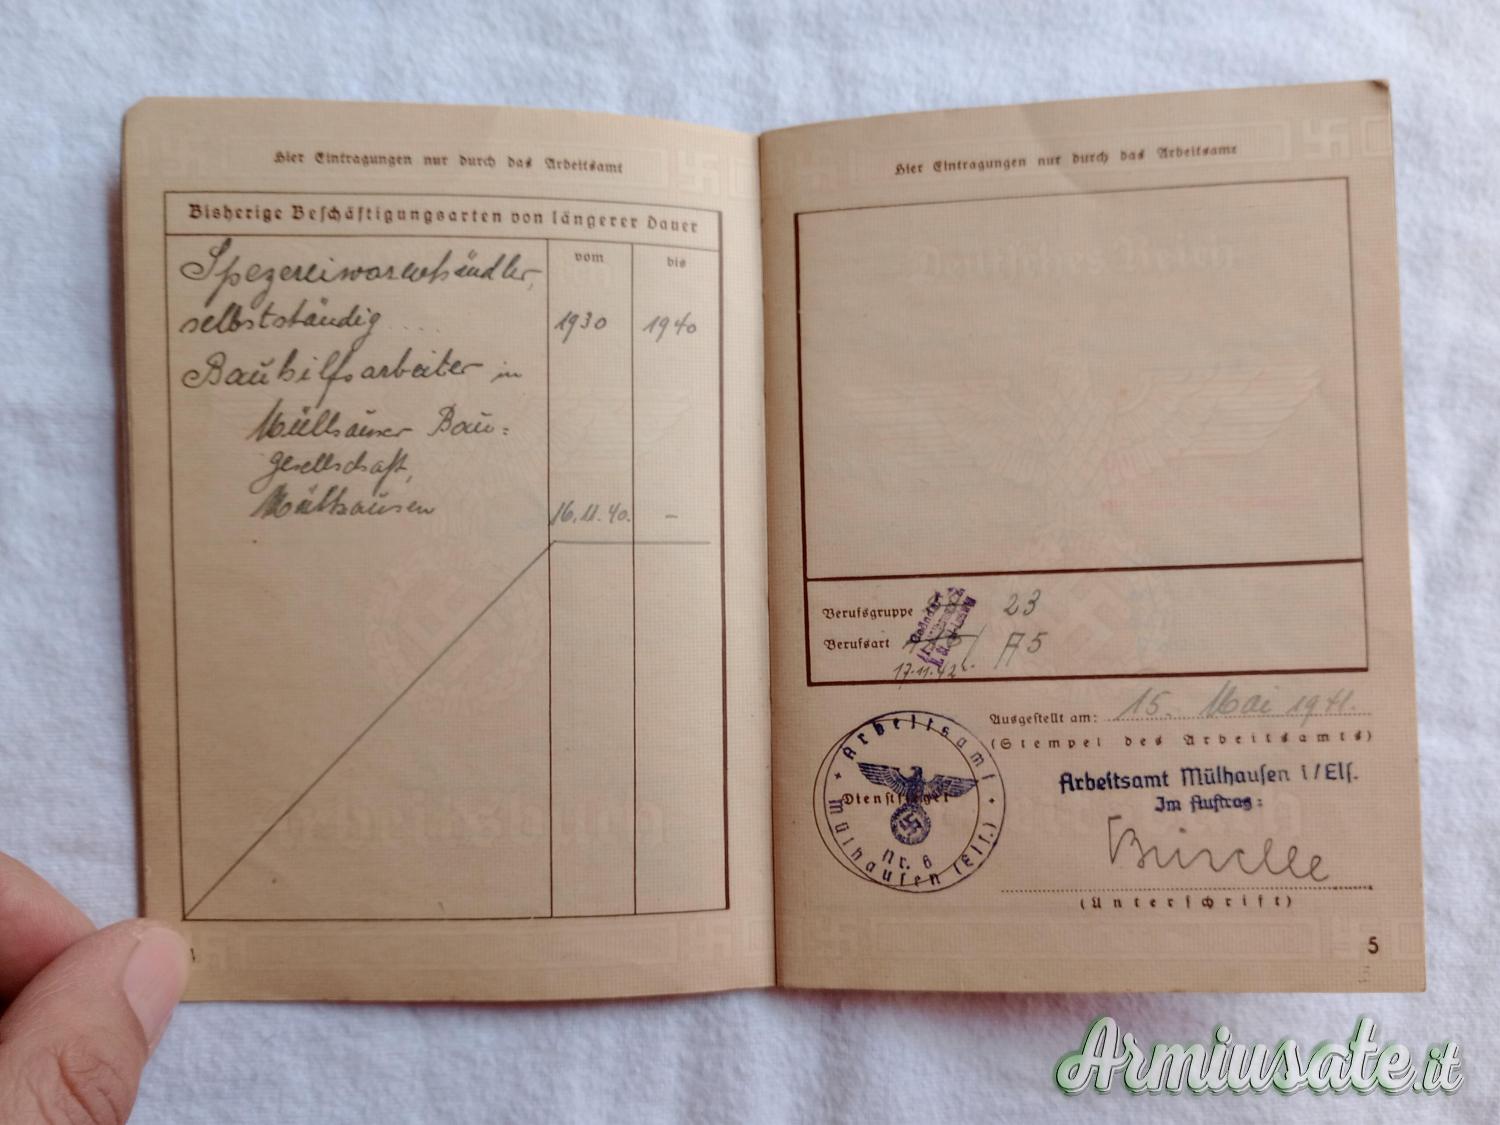 Hier Eintragungen nur durch das Arbeitsamt
Bisherige Beschäftigungsarten von längerer Dauer
vom bis
Spezereiwarenhändler,
selbstständig .... 1930 1940
Bauhilfsarbeiter in
Mülhauser Bau=
gesellschaft,
Mülhausen 16.11.40. –
Hier Eintragungen nur durch das Arbeitsamt
Berufsgruppe 23
Berufsart A5
17.11.42
Ausgestellt am: 15. Mai 1941.
(Stempel des Arbeitsamts)
Arbeitsamt Mülhausen i/Els.
Im Auftrag:
Arbeitsamt
Dienstsiegel
Nr. 6
Mülhausen (Els.)
(Unterschrift)
5
Armiusate.it